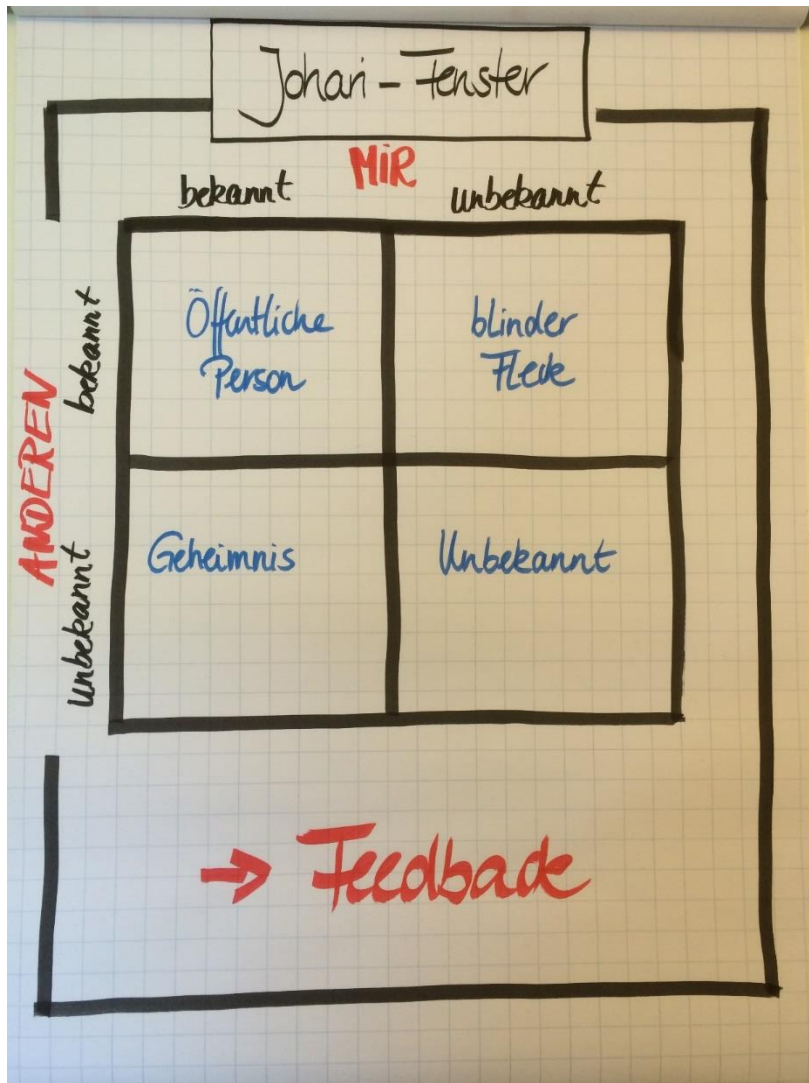 Johari - Fenster
MIR
bekannt unbekannt
ANDEREN
bekannt
Öffentliche
Person
blinder
Fleck
unbekannt
Geheimnis
Unbekannt
→ Feedback